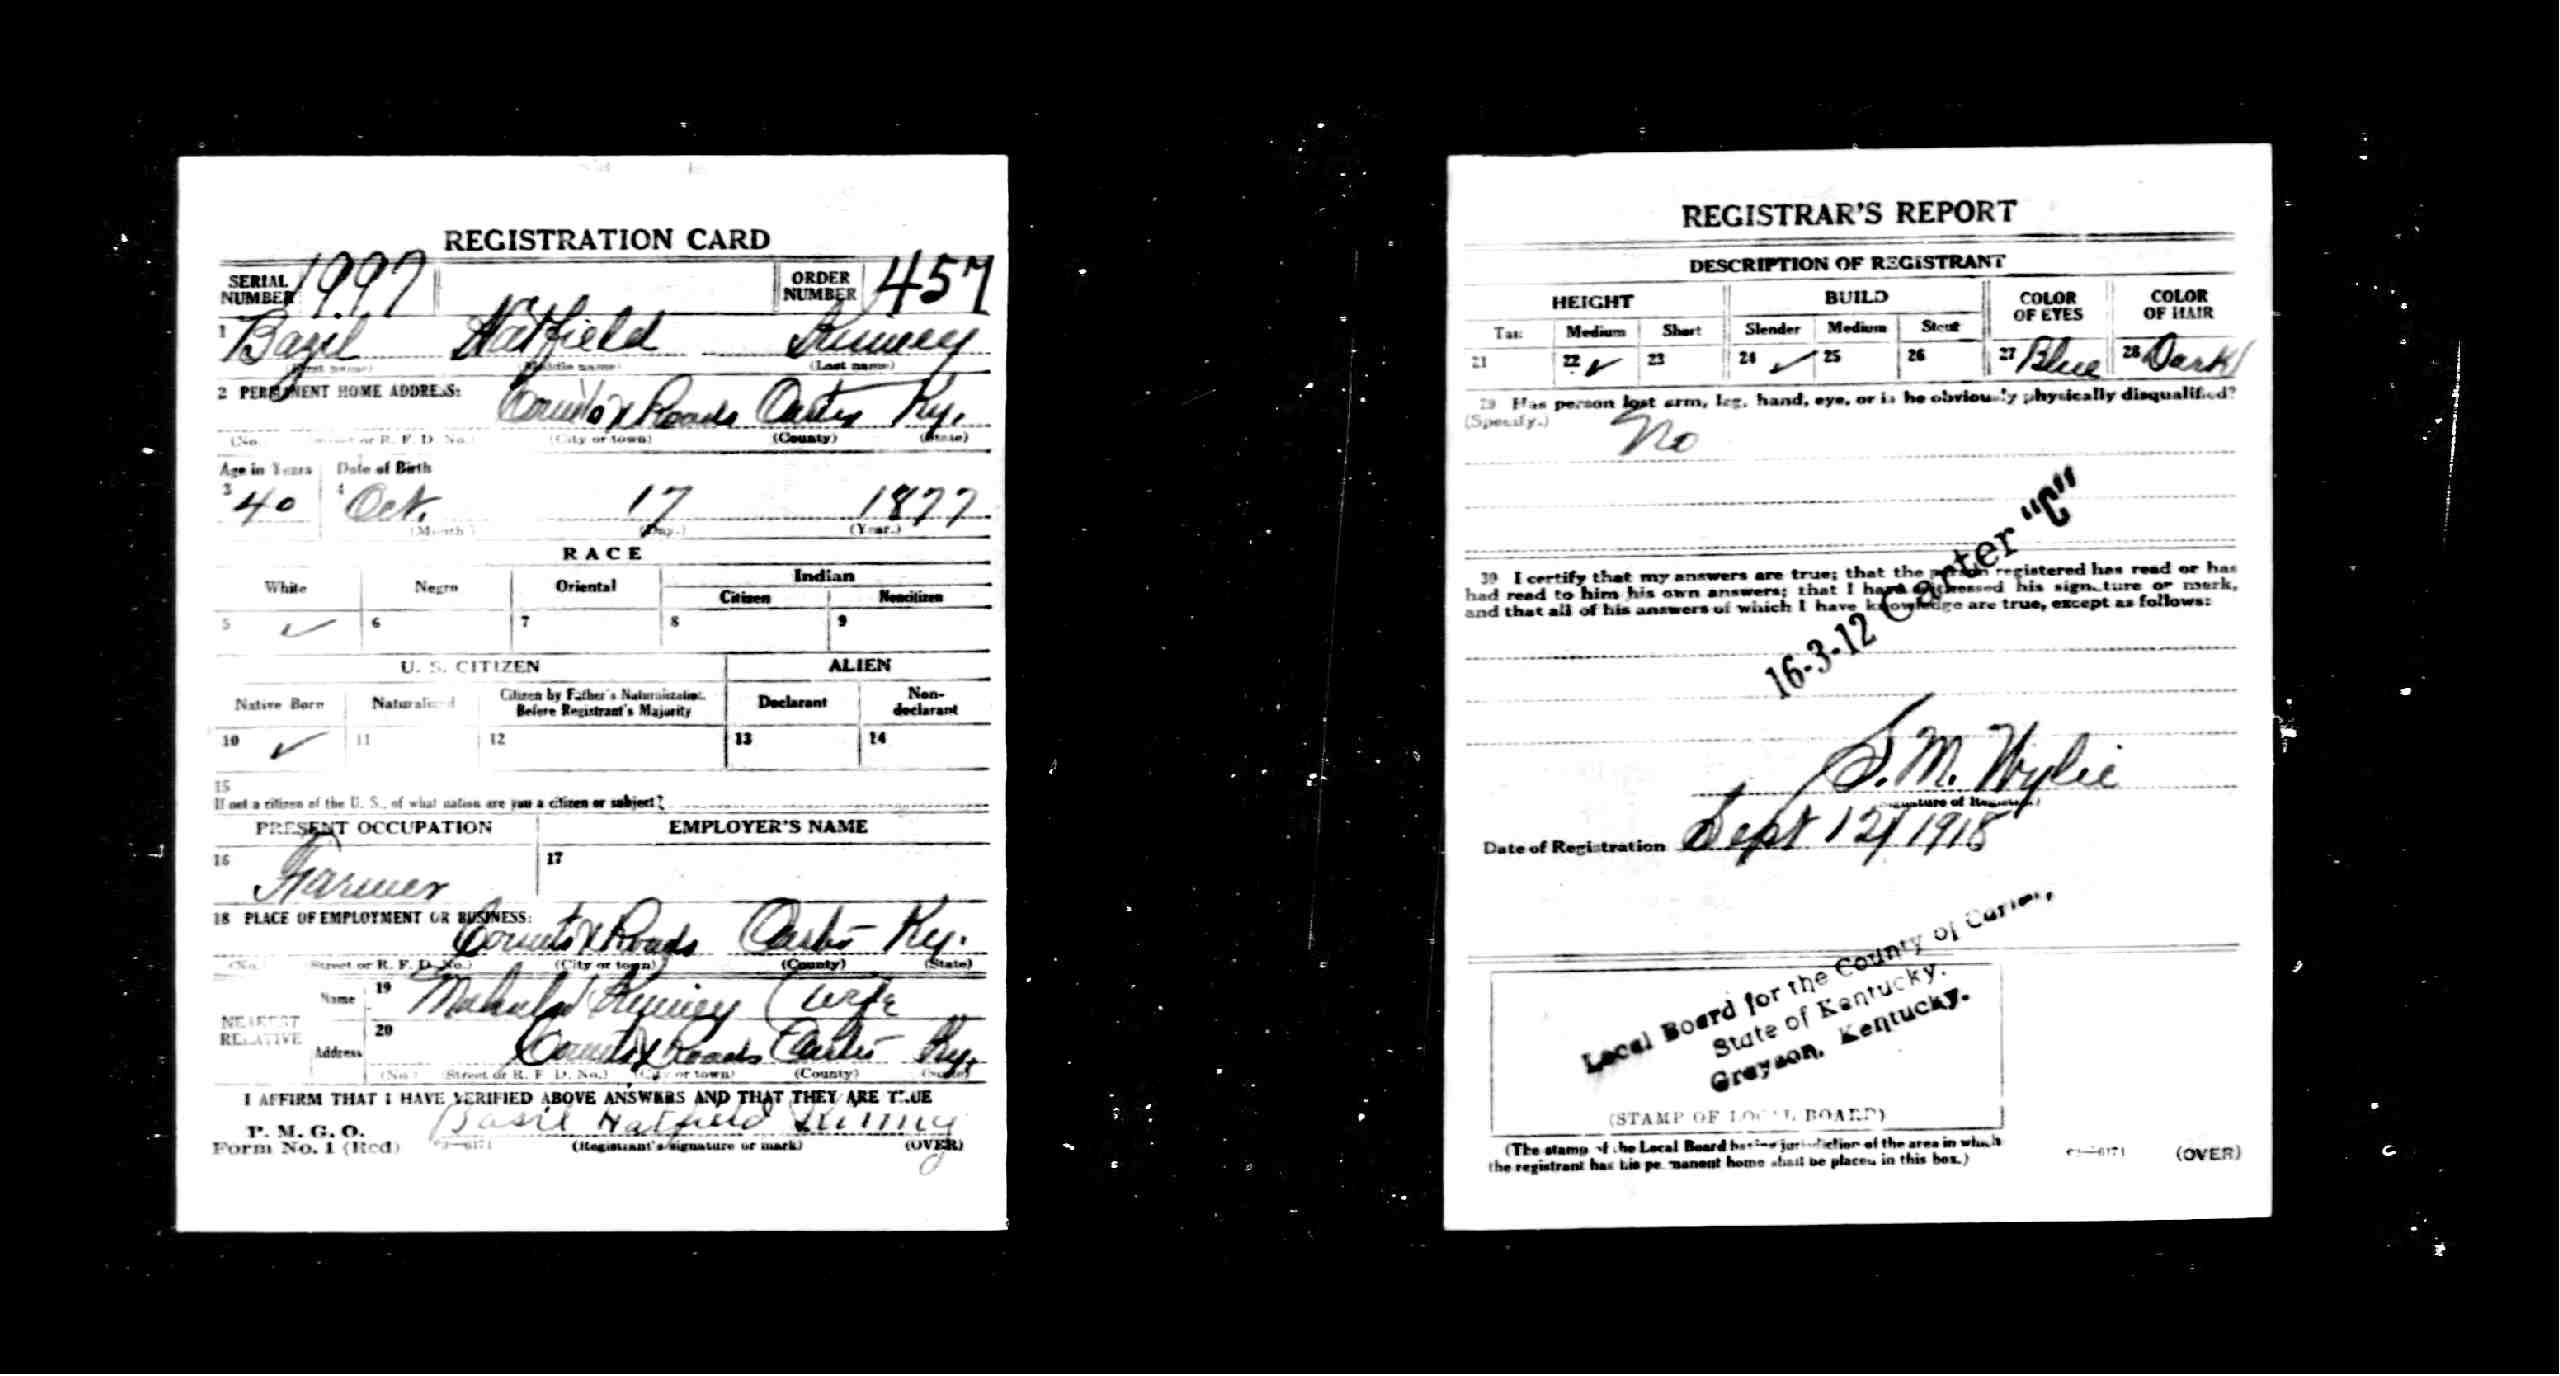 REGISTRATION CARD
SERIAL NUMBER 1997
ORDER NUMBER 457
1 Bazil Hatfield Kinney
(First name) (Middle name) (Last name)
2 PERMANENT HOME ADDRESS:
Counts X Roads Carter Ky.
(No.) (Street or R. F. D. No.) (City or town) (County) (State)
Age in Years Date of Birth
3 40 4 Oct. 17 1877
(Month) (Day.) (Year.)
RACE
White Negro Oriental Indian
Citizen Noncitizen
5 ✓ 6 7 8 9
U. S. CITIZEN ALIEN
Native Born Naturalized Citizen by Father's Naturalization Before Registrant's Majority Declarant Non-declarant
10 ✓ 11 12 13 14
15
If not a citizen of the U. S., of what nation are you a citizen or subject?
PRESENT OCCUPATION EMPLOYER'S NAME
16 Farmer 17
18 PLACE OF EMPLOYMENT OR BUSINESS:
Counts X Roads Carter Ky.
(No.) (Street or R. F. D. No.) (City or town) (County) (State)
NEAREST RELATIVE
Name 19 Mahala Kinney (wife
Address 20 Counts X Roads Carter Ky.
(No.) (Street or R. F. D. No.) (City or town) (County) (State)
I AFFIRM THAT I HAVE VERIFIED ABOVE ANSWERS AND THAT THEY ARE TRUE
P. M. G. O.
Form No. 1 (Red)
Basil Hatfield Kinney
(Registrant's signature or mark) (OVER)
REGISTRAR'S REPORT
DESCRIPTION OF REGISTRANT
HEIGHT BUILD COLOR OF EYES COLOR OF HAIR
Tall Medium Short Slender Medium Stout
21 22 ✓ 23 24 ✓ 25 26 27 Blue 28 Dark
29 Has person lost arm, leg, hand, eye, or is he obviously physically disqualified?
(Specify.) No
30 I certify that my answers are true; that the person registered has read or has
had read to him his own answers; that I have witnessed his signature or mark,
and that all of his answers of which I have knowledge are true, except as follows:
16-3-12 Carter "C"
S. M. Wylie
(Signature of Registrar)
Date of Registration Sept 12/1918
Local Board for the County of Carter,
State of Kentucky.
Grayson, Kentucky.
(STAMP OF LOCAL BOARD)
(The stamp of the Local Board having jurisdiction of the area in which
the registrant has his permanent home shall be placed in this box.)
(OVER)